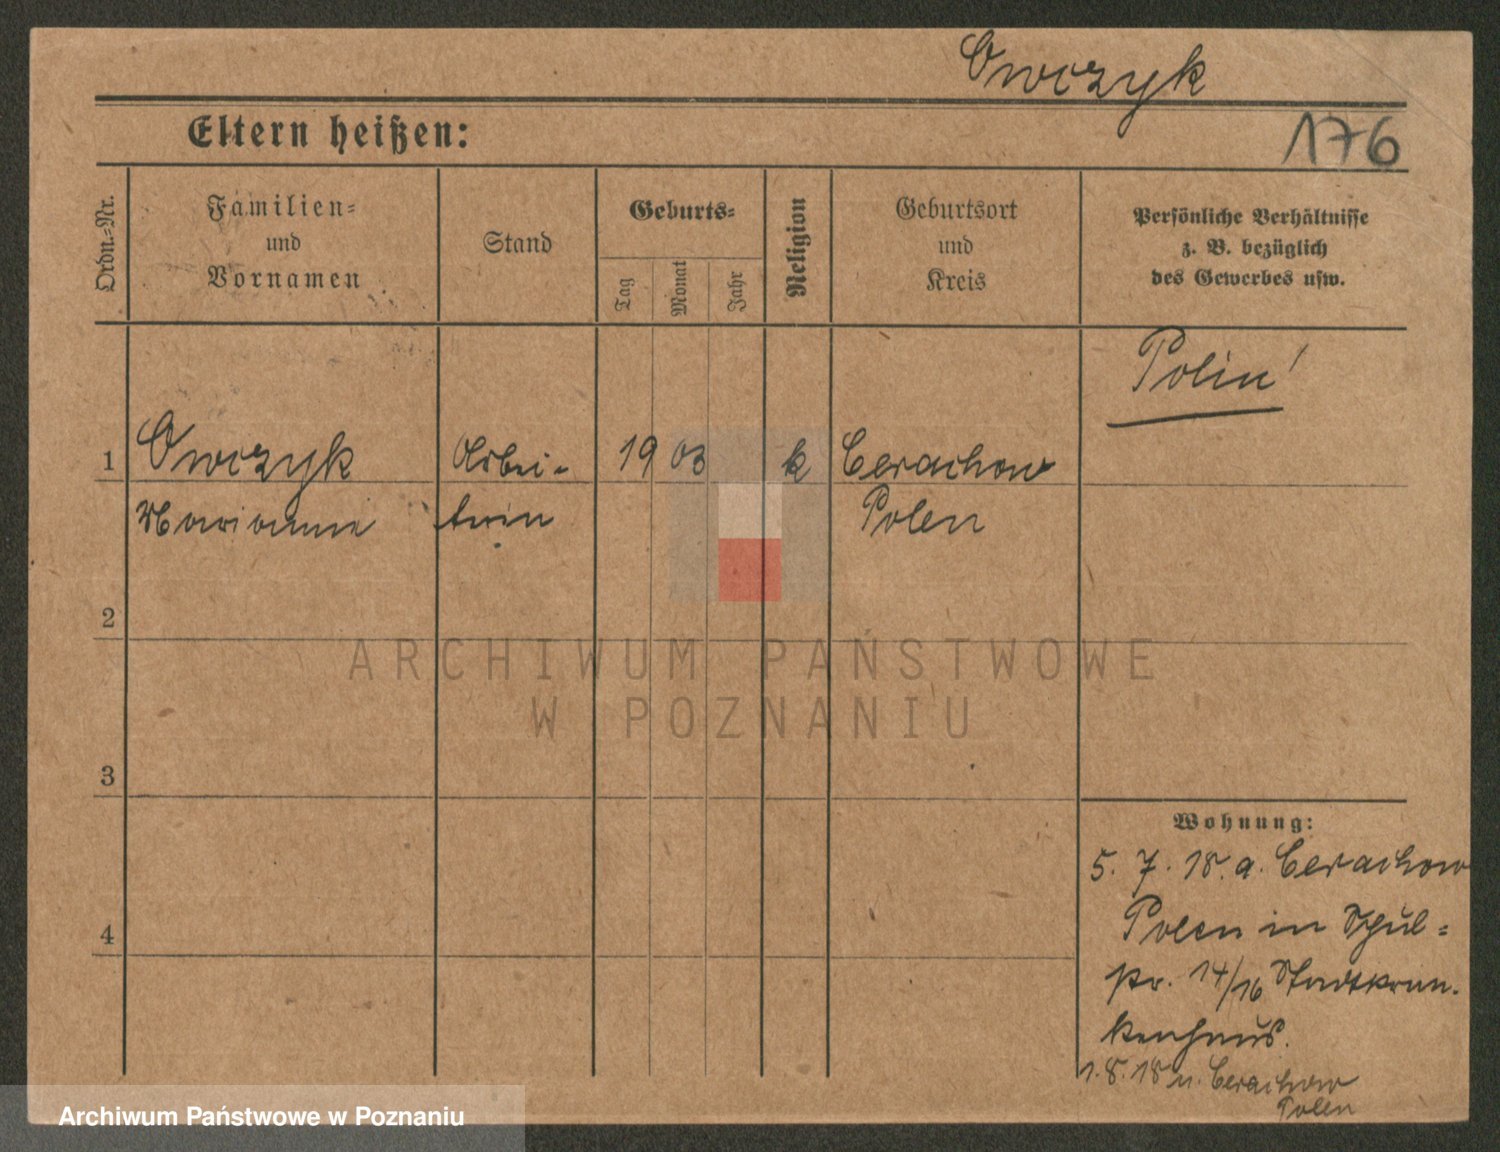 Owczyk
Eltern heißen:
176
Ordn.-Nr.
Familien-
und
Vornamen
Stand
Geburts-
Tag
Monat
Jahr
Religion
Geburtsort
und
Kreis
Persönliche Verhältnisse
z. B. bezüglich
des Gewerbes usw.
Polin!
1 Owczyk Arbei- 1903 k Cerachow
Marianne terin Polen
2
ARCHIWUM PAŃSTWOWE
W POZNANIU
3
Wohnung:
5. 7. 18. a. Cerachow
4
Polen in Schul-
str. 14/16 Stadtkran-
kenhaus.
1. 8. 18 n. Cerachow
Polen
Archiwum Państwowe w Poznaniu